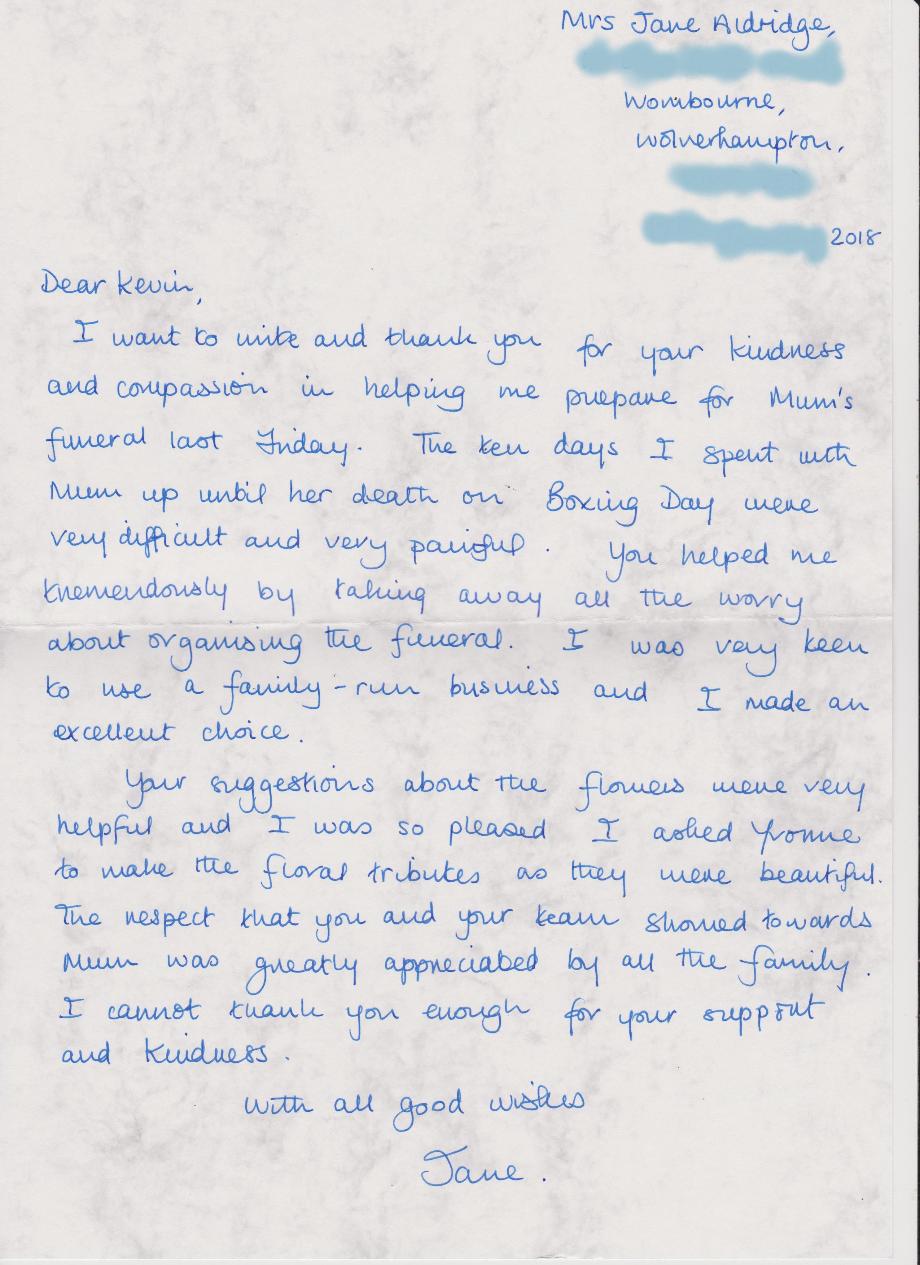 Mrs Jane Aldridge,
Wombourne,
Wolverhampton,
2018
Dear Kevin,
I want to write and thank you for your kindness
and compassion in helping me prepare for Mum's
funeral last Friday. The ten days I spent with
Mum up until her death on Boxing Day were
very difficult and very painful. You helped me
tremendously by taking away all the worry
about organising the funeral. I was very keen
to use a family-run business and I made an
excellent choice.
Your suggestions about the flowers were very
helpful and I was so pleased I asked Yvonne
to make the floral tributes as they were beautiful.
The respect that you and your team showed towards
Mum was greatly appreciated by all the family.
I cannot thank you enough for your support
and kindness.
With all good wishes
Jane.